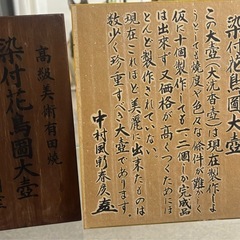 この大壺(大沈香壺)は現在製作しよ
うとしても焼成色々な条件が難かしく
仮に十個製作しても一、二個しか完成品
は出来ず、又価格が高くつくためにほ
とんど製作されていない。
現在これほど美麗に出来たものは
数少く珍重すべき大壺であります。
中村
高級美術有田焼
染付花鳥圖大壺